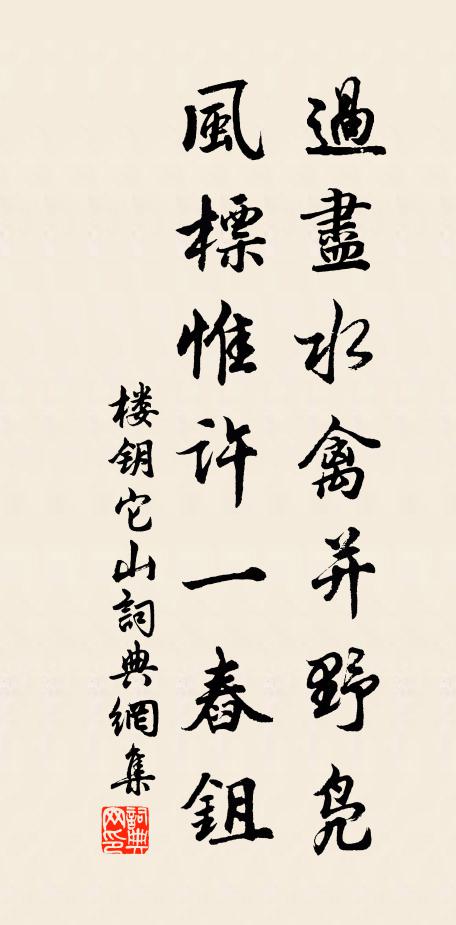 過盡水禽并野凫
風標惟許一舂鉏
楼钥它山詞典網集
詞典网印